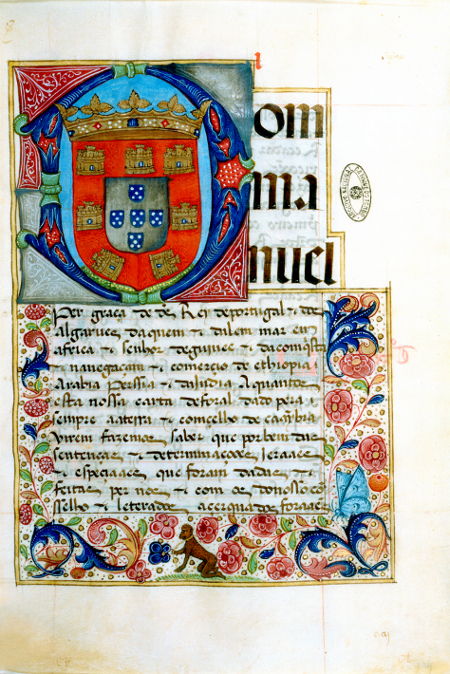 Dom
ma
nuel
Per graça de ds Rey deportugal & dos
algarues daquem & dalem mar em
africa & senhor deguinee & daconqsta
& nauegacam & comercio de ethiopia
Arabia Perssia & dajndia Aquantos
esta nossa carta deforal dado pera
sempre aaterra & concelho de cambra
virem fazemos saber que porbem das
sentenças & determinaçooes jeraaes
& espiciaaes que foram dadas &
feitas per nos & com os donosso co
sselho & leterados acerquados foraaes